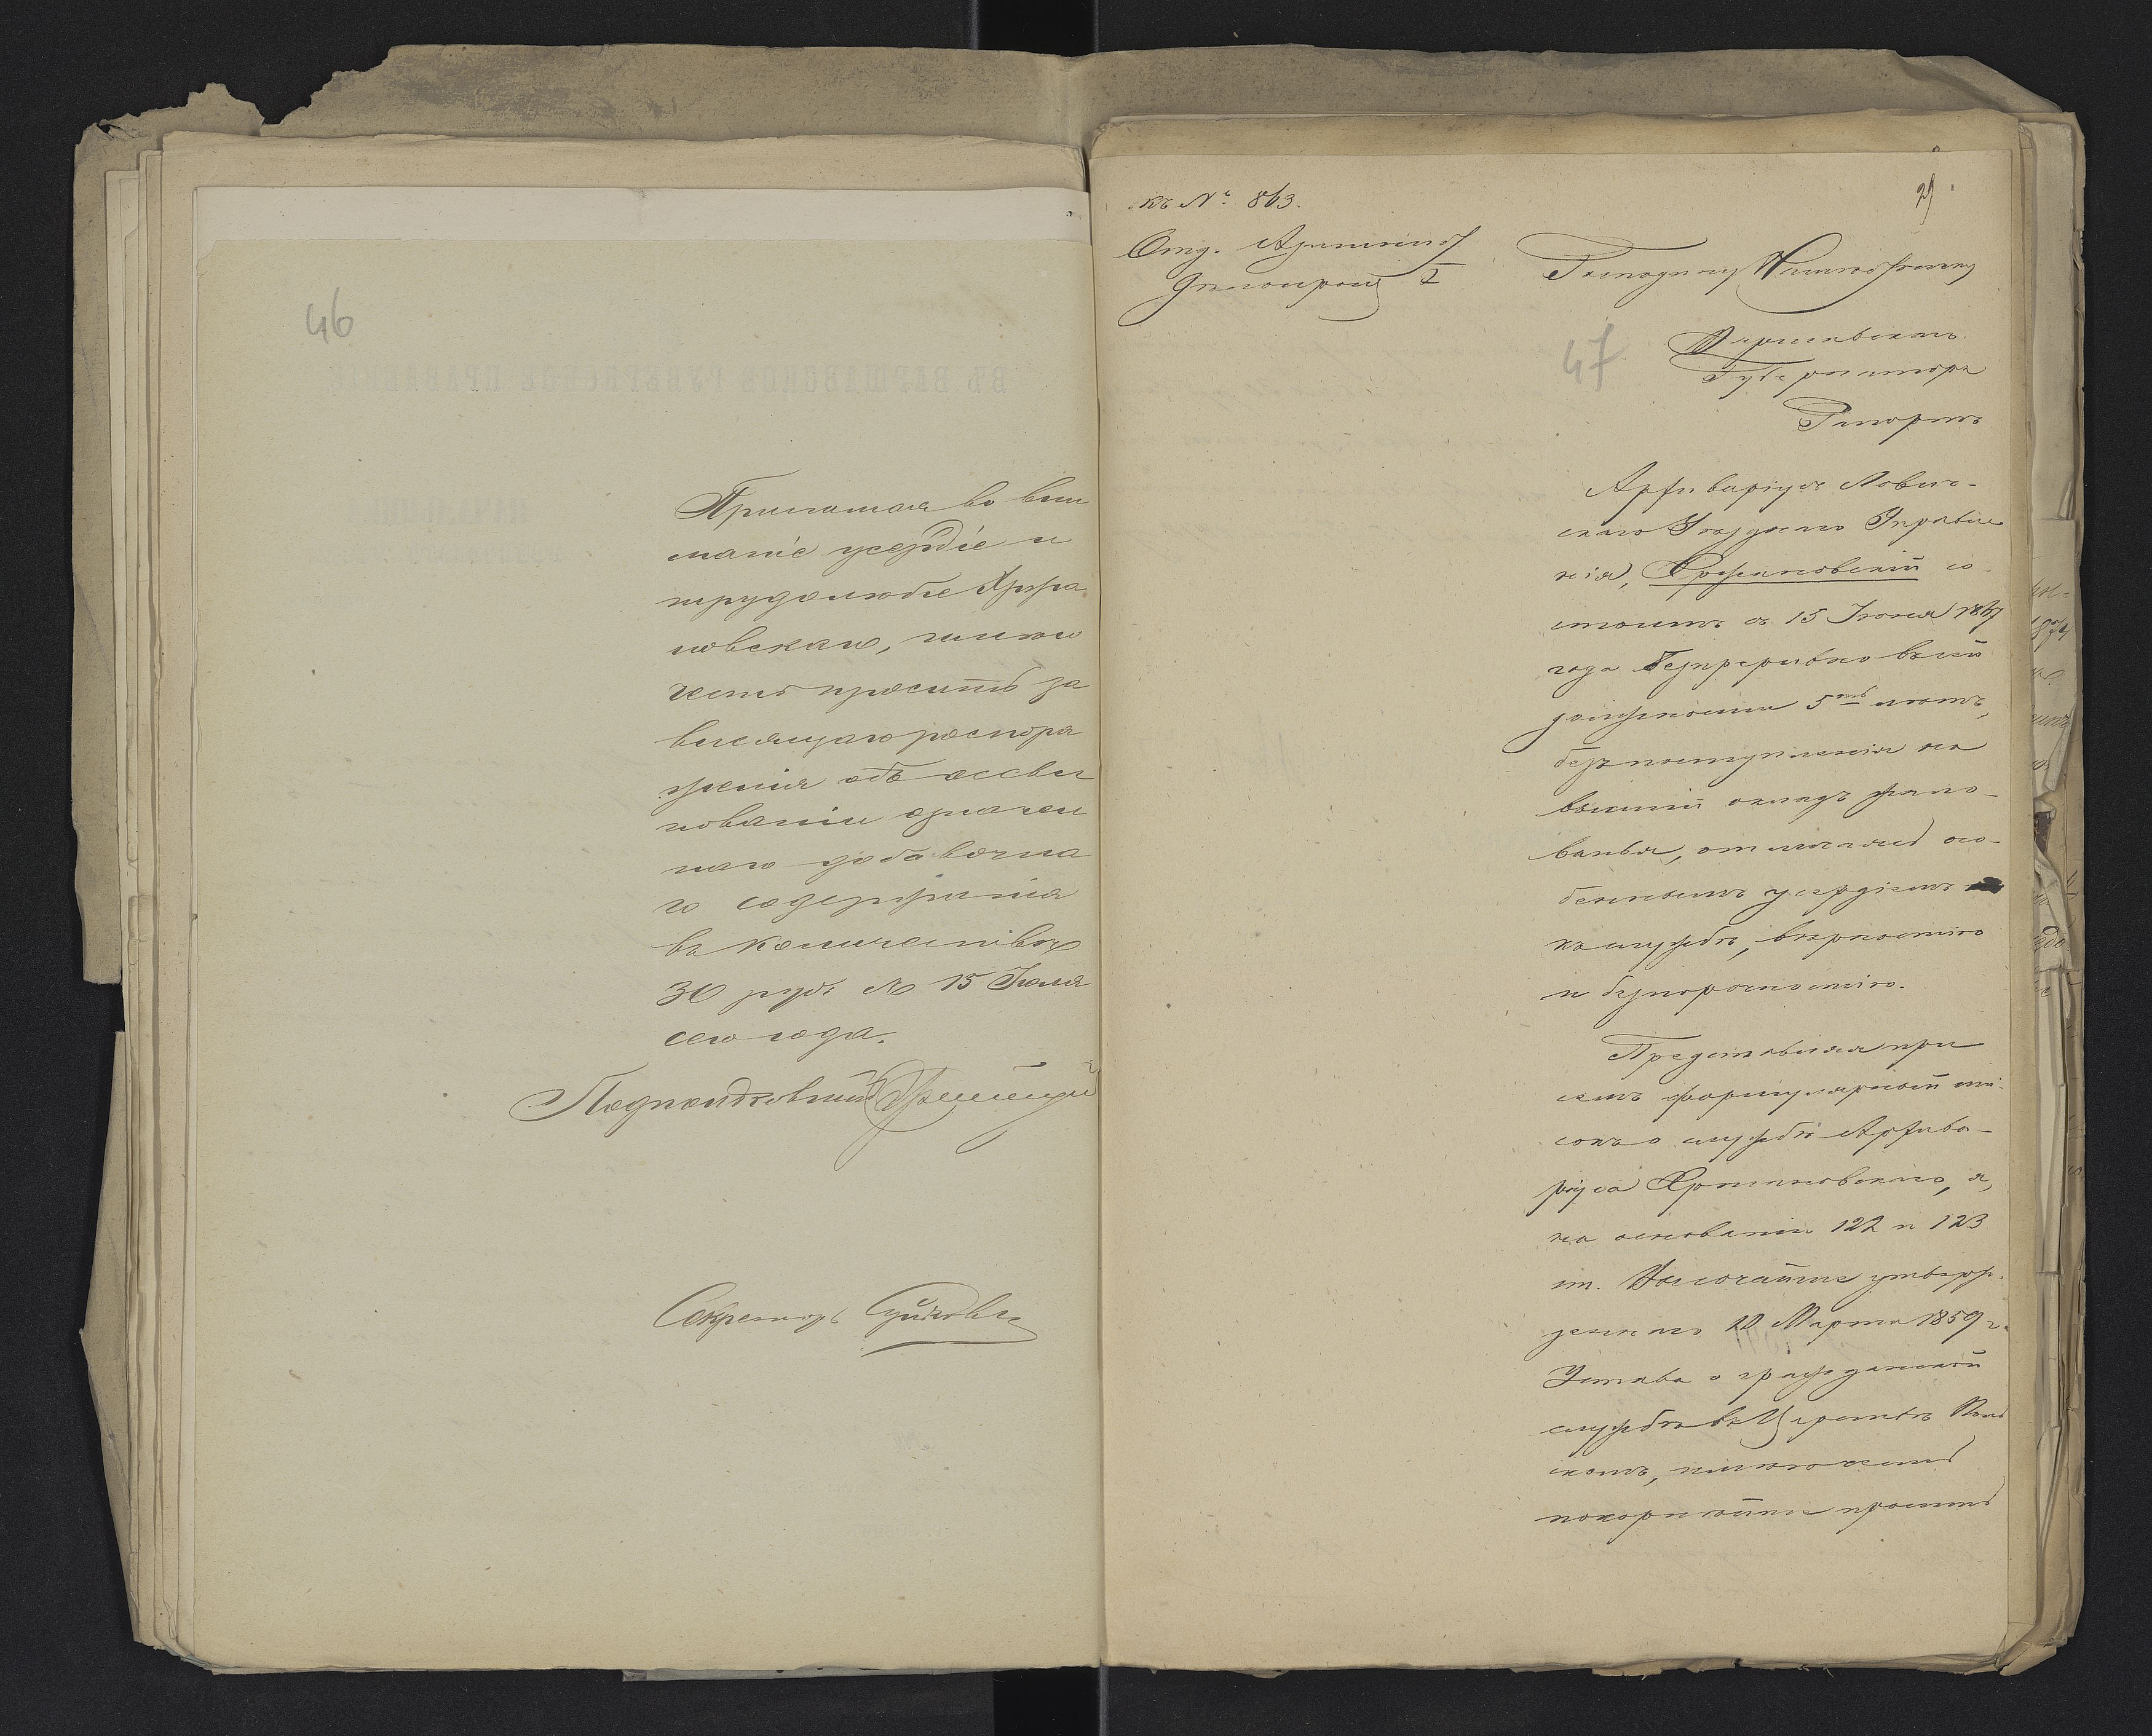 46
Принимая во вни
маніе усердіе и
трудолюбіе Хржа
новскаго, имѣю
честь просить за
висящаго распоря
женія объ ассиг
нованіи означен
наго добавочна
го содержанія
въ количествѣ
30 руб. съ 15 Іюля
сего года.
Подполковникъ
Секретарь
къ № 863.
29
Отд. Админист
Дѣлопроиз I
Господину
47
Варшавскаго
Губернатора
Рапортъ
Архиваріусъ Лович-
скаго Уѣзднаго Управле
нія, Хржановскій со
стоитъ съ 15 Іюля 1867
года безпрерывно въ сей
должности 5ть лѣтъ,
безъ поступленія на
высшій окладъ жало-
ванья, отличаясь осо-
беннымъ усердіемъ
къ службѣ, вѣрностію
и безпорочностію.
Представляя при
семъ формулярный спи
сокъ о службѣ Архива-
ріуса Хржановскаго, я,
на основаніи 122 и 123
ст. Высочайше утверж-
деннаго 10 Марта 1859 г.
Устава о гражданской
службѣ въ Царствѣ Поль
скомъ, имѣю честь
покорнѣйше просить